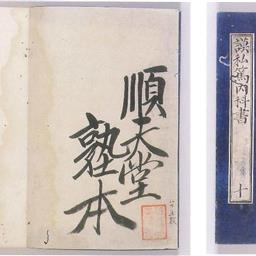 順天堂
塾本
謨私篤内科書
十